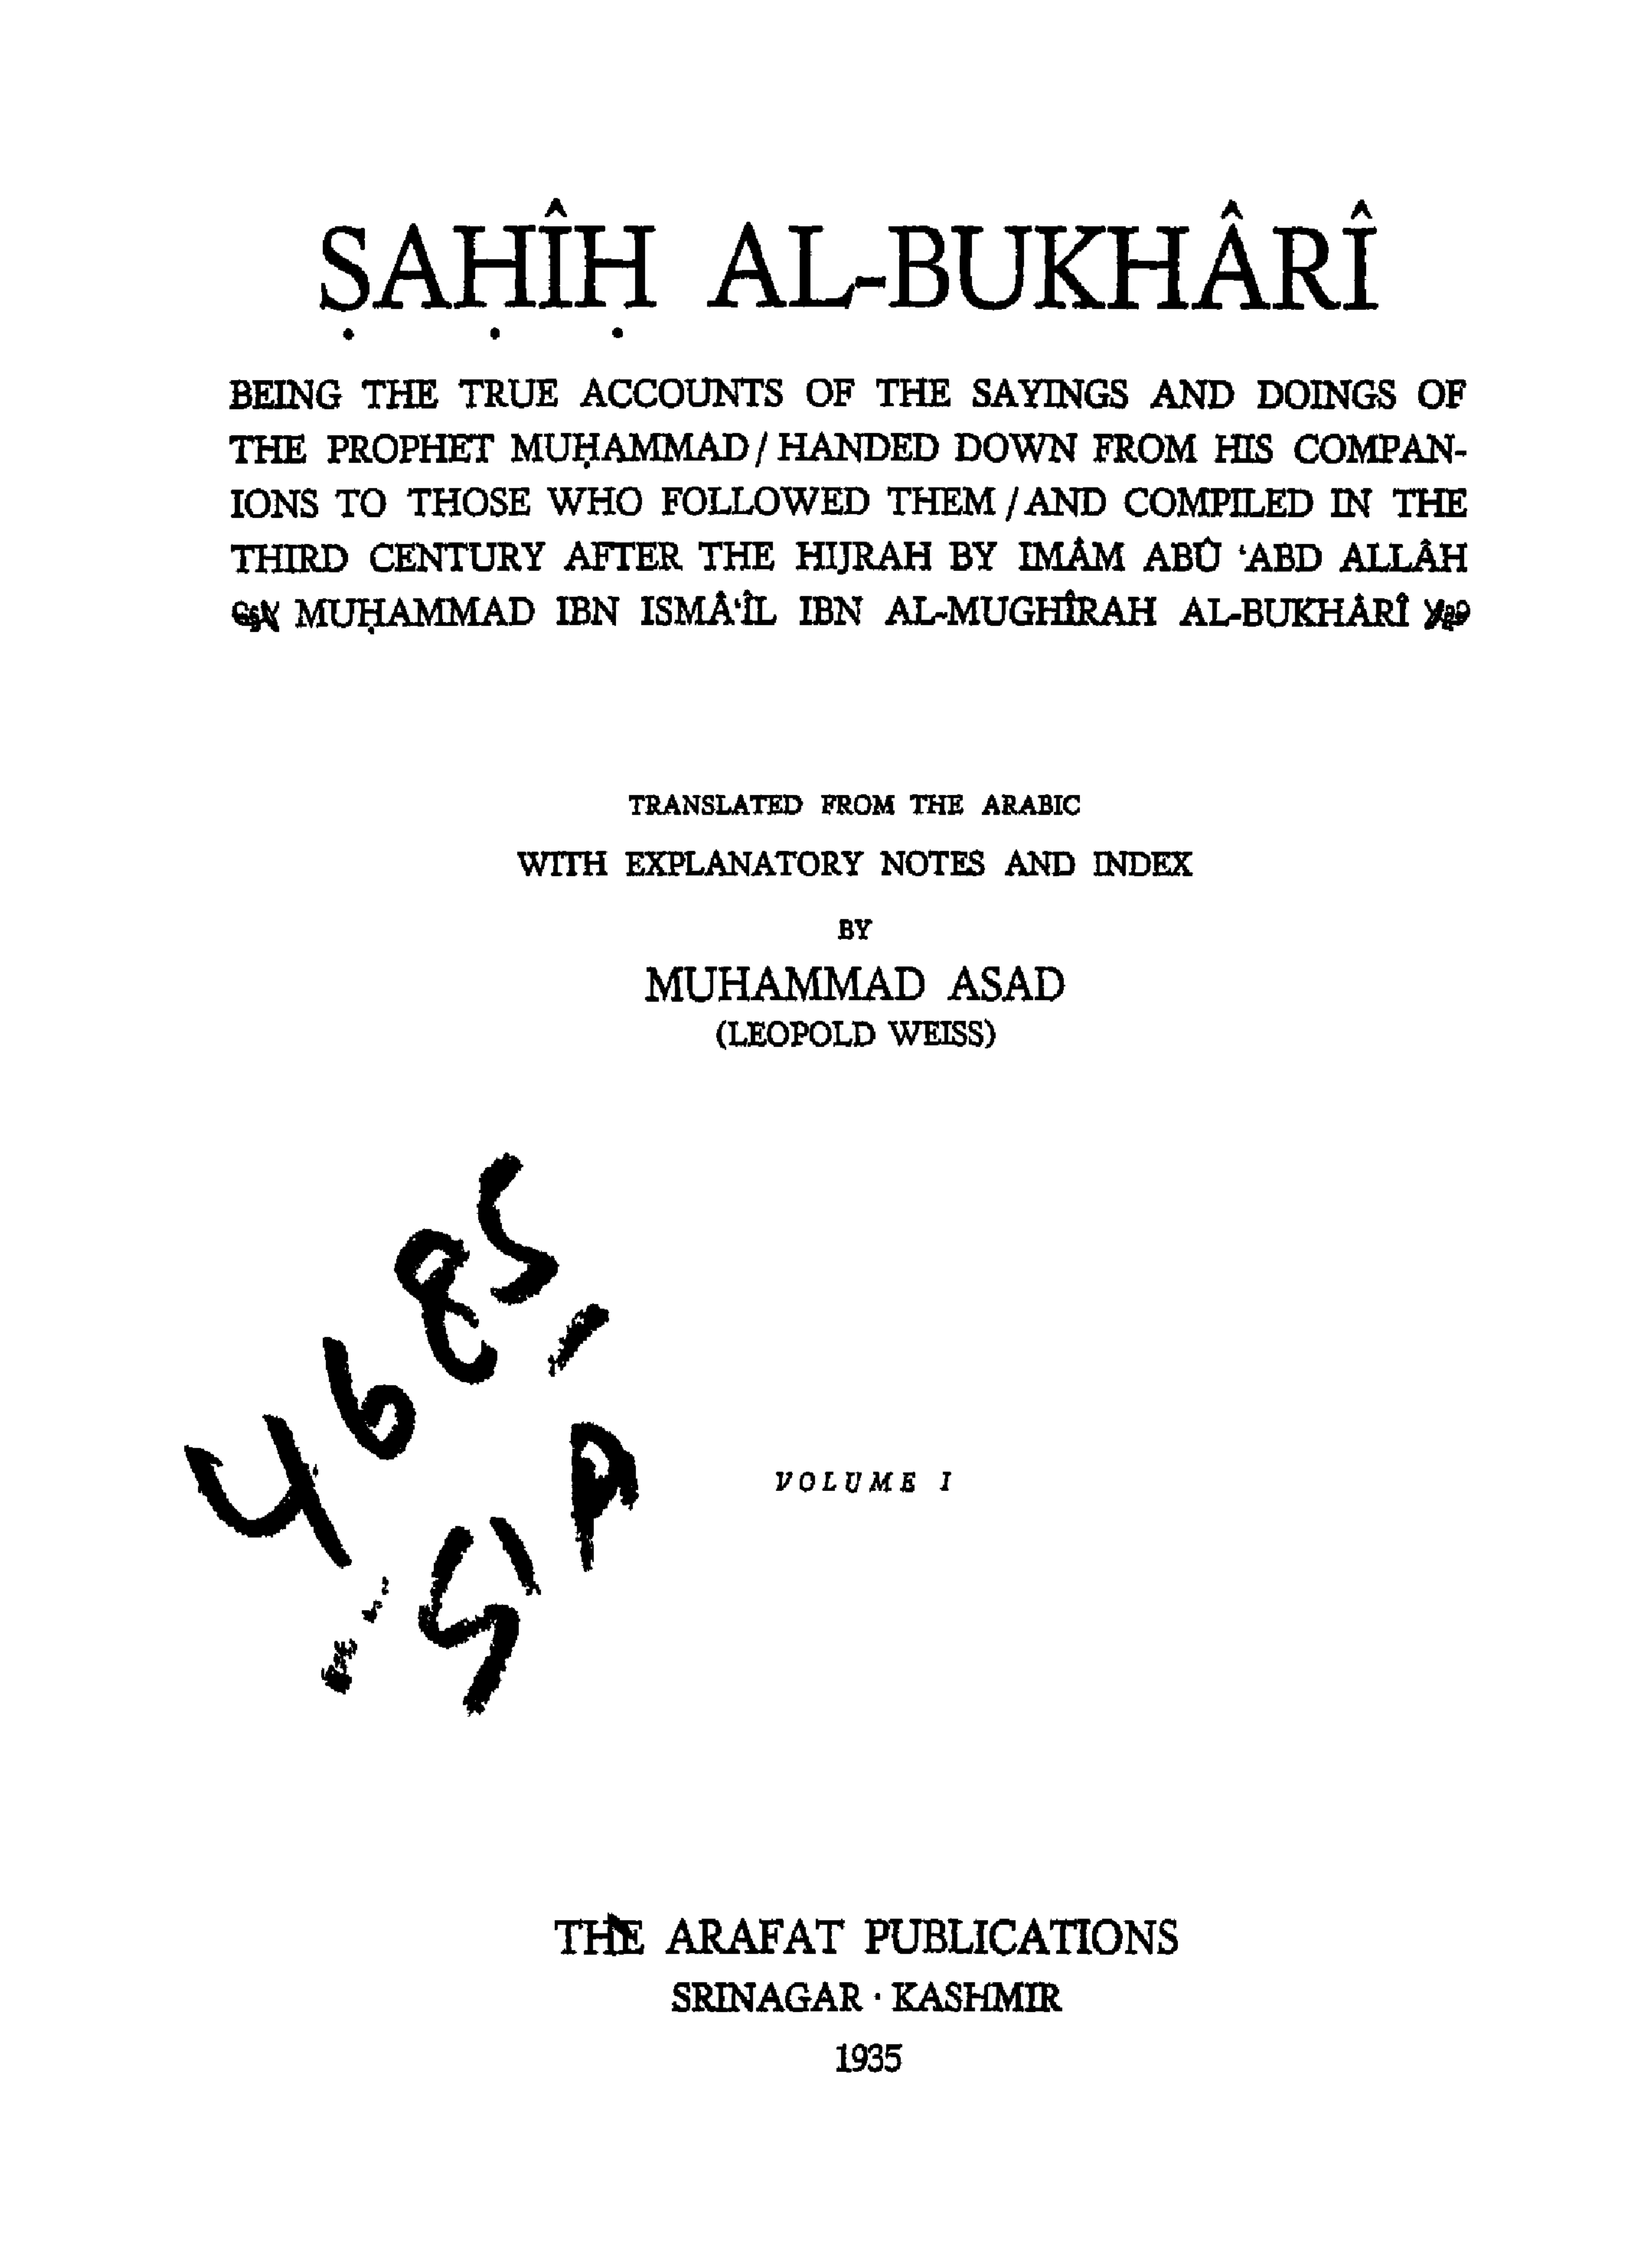 ṢAḤÎḤ AL-BUKHÂRÎ
BEING THE TRUE ACCOUNTS OF THE SAYINGS AND DOINGS OF
THE PROPHET MUḤAMMAD / HANDED DOWN FROM HIS COMPAN-
IONS TO THOSE WHO FOLLOWED THEM / AND COMPILED IN THE
THIRD CENTURY AFTER THE HIJRAH BY IMÂM ABÛ ‘ABD ALLÂH
MUḤAMMAD IBN ISMÂ‘ÎL IBN AL-MUGHÎRAH AL-BUKHÂRÎ
TRANSLATED FROM THE ARABIC
WITH EXPLANATORY NOTES AND INDEX
BY
MUHAMMAD ASAD
(LEOPOLD WEISS)
4685
VOLUME I
THE ARAFAT PUBLICATIONS
SRINAGAR · KASHMIR
1935